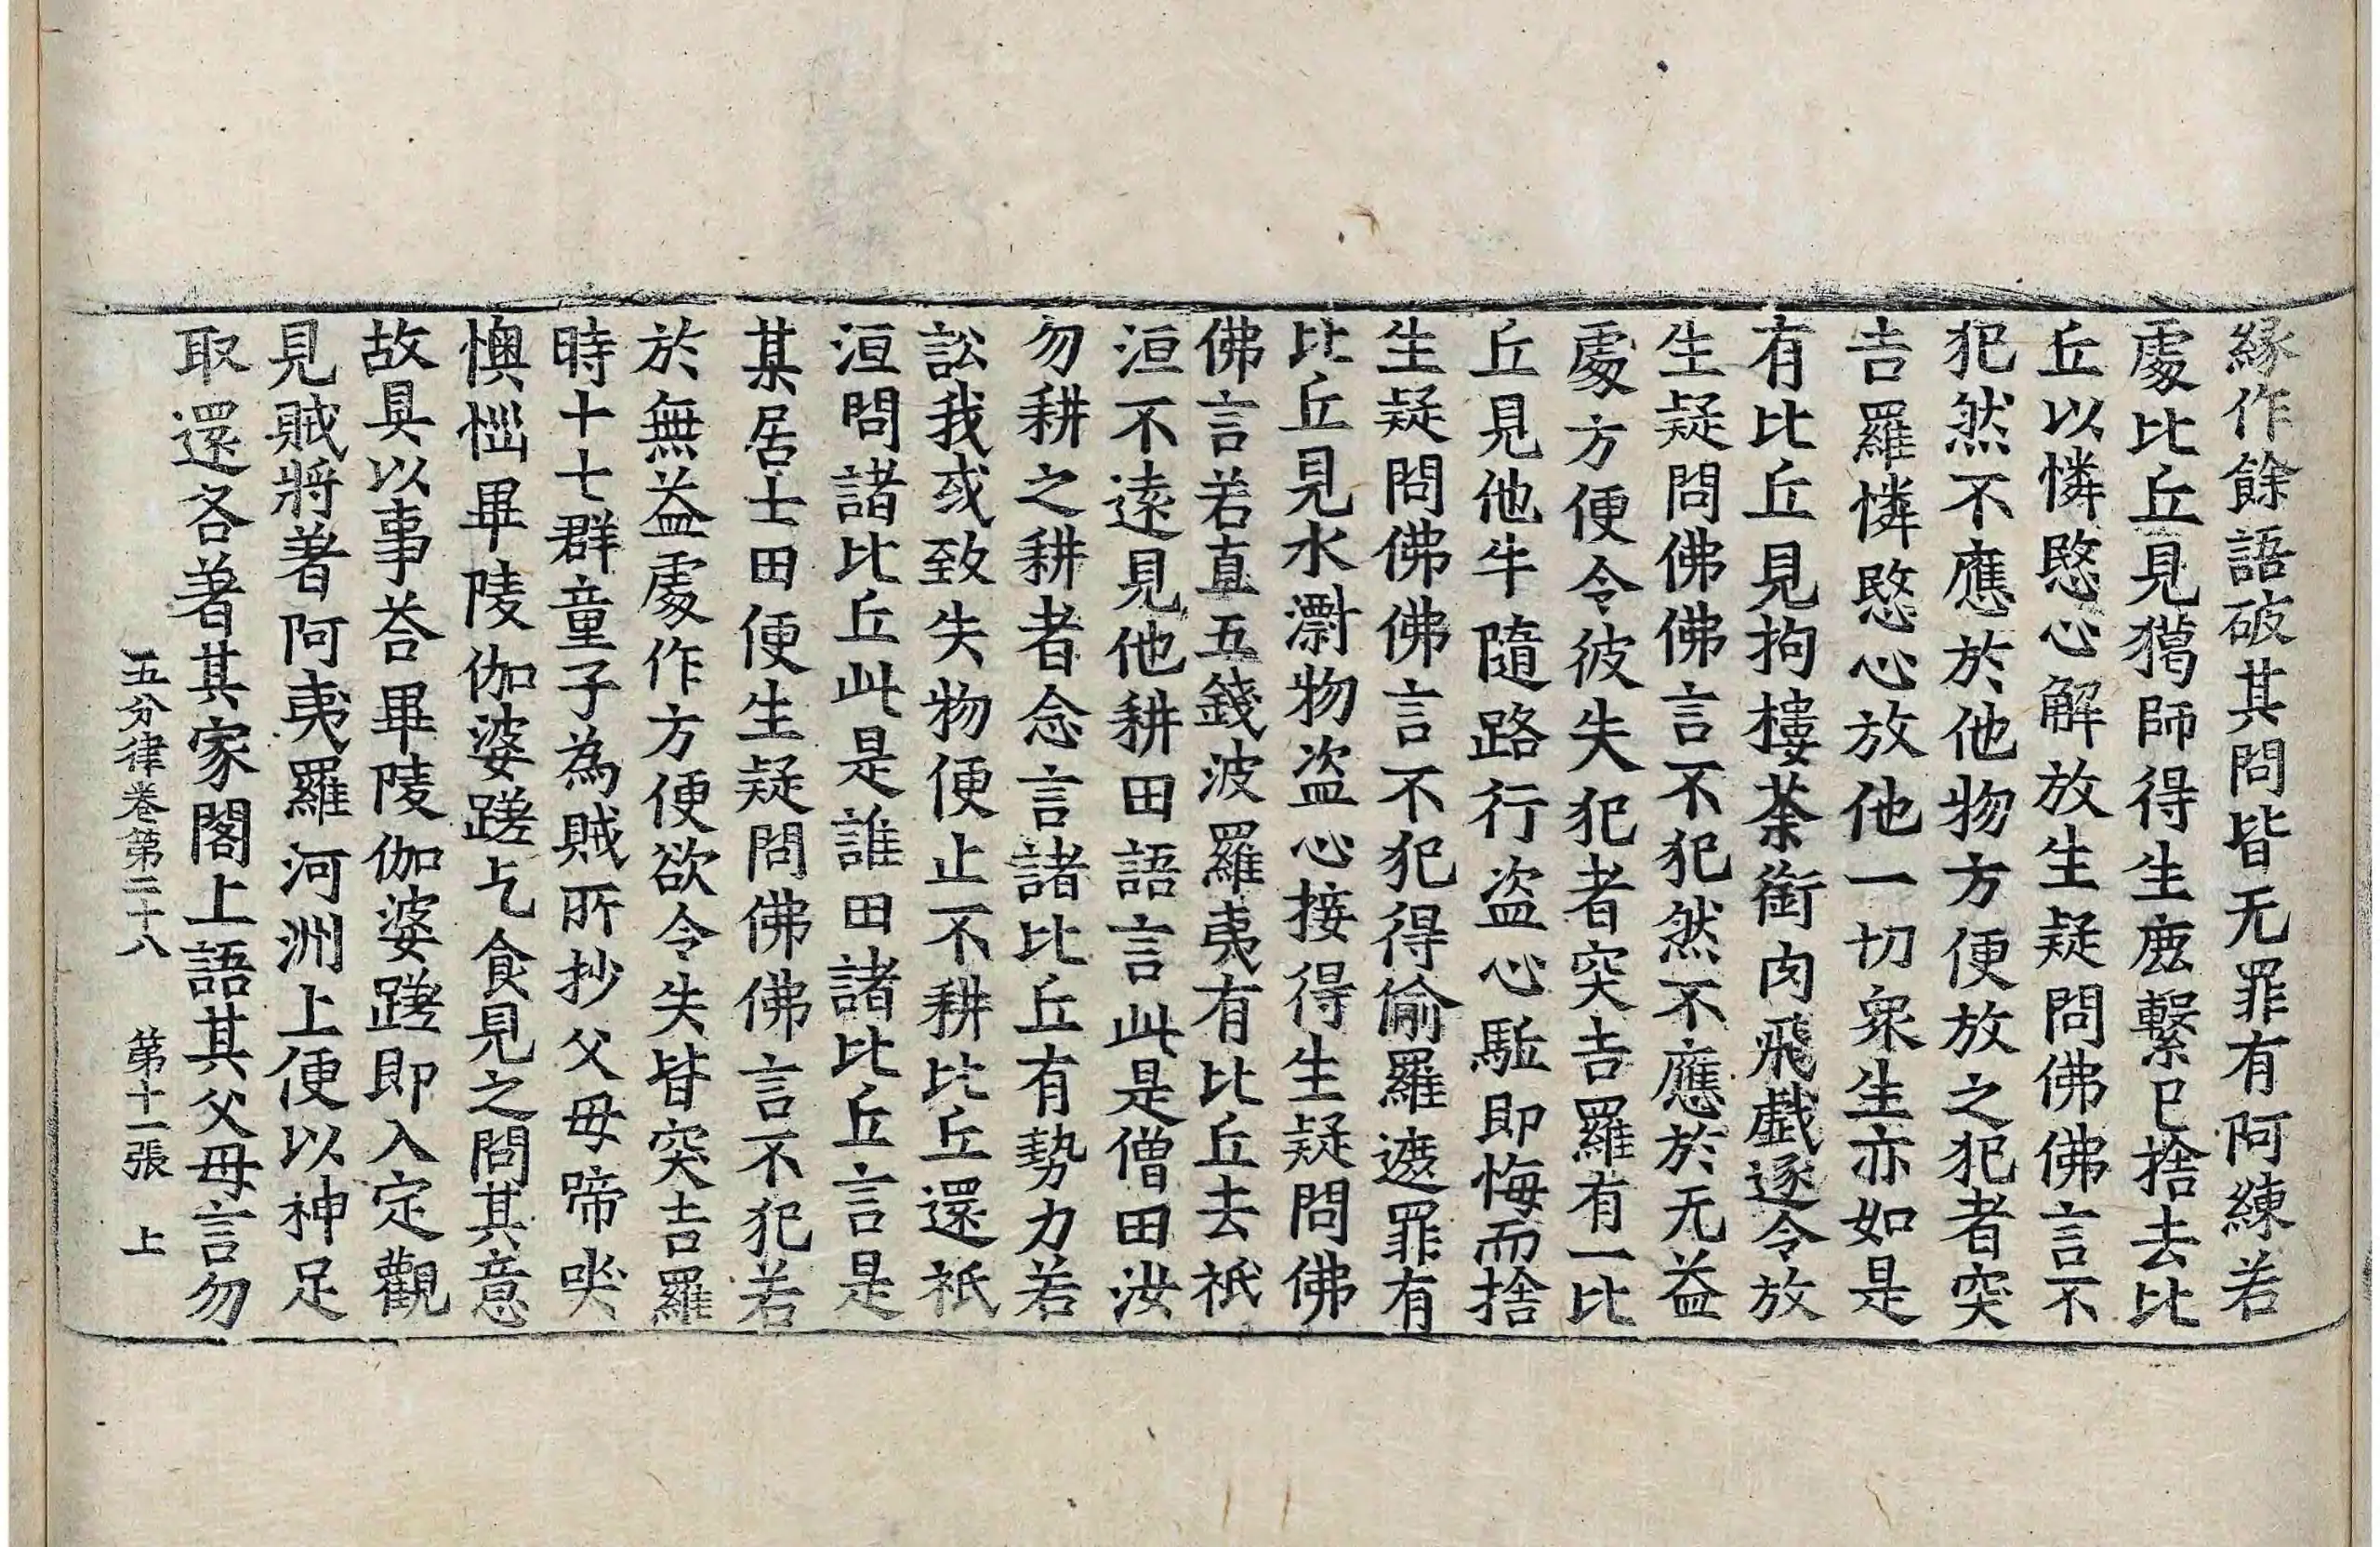 緣作餘語破其問皆无罪有阿練若
處比丘見獦師得生鹿繫巳捨去比
丘以憐愍心解放生疑問佛佛言不
犯然不應於他物方便放之犯者突
吉羅憐愍心放他一切衆生亦如是
有比丘見拘樓荼銜肉飛戱逐令放
生疑問佛佛言不犯然不應於无益
處方便令彼失犯者突吉羅有一比
丘見他牛隨路行盜心駈即悔而捨
生疑問佛佛言不犯得偷羅遮罪有
比丘見水㵋物盜心接得生疑問佛
佛言若直五錢波羅夷有比丘去祇
洹不遠見他耕田語言此是僧田汝
勿耕之耕者念言諸比丘有勢力若
訟我或致失物便止不耕比丘還祇
洹問諸比丘此是誰田諸比丘言是
某居士田便生疑問佛佛言不犯若
於無益處作方便欲令失皆突吉羅
時十七群童子為賊所抄父母啼哭
懊惱畢陵伽婆蹉乞食見之問其意
故具以事荅畢陵伽婆蹉即入定觀
見賊將著阿夷羅河洲上便以神足
取還各著其家閣上語其父母言勿
五分律卷第二十八 第十一張 上